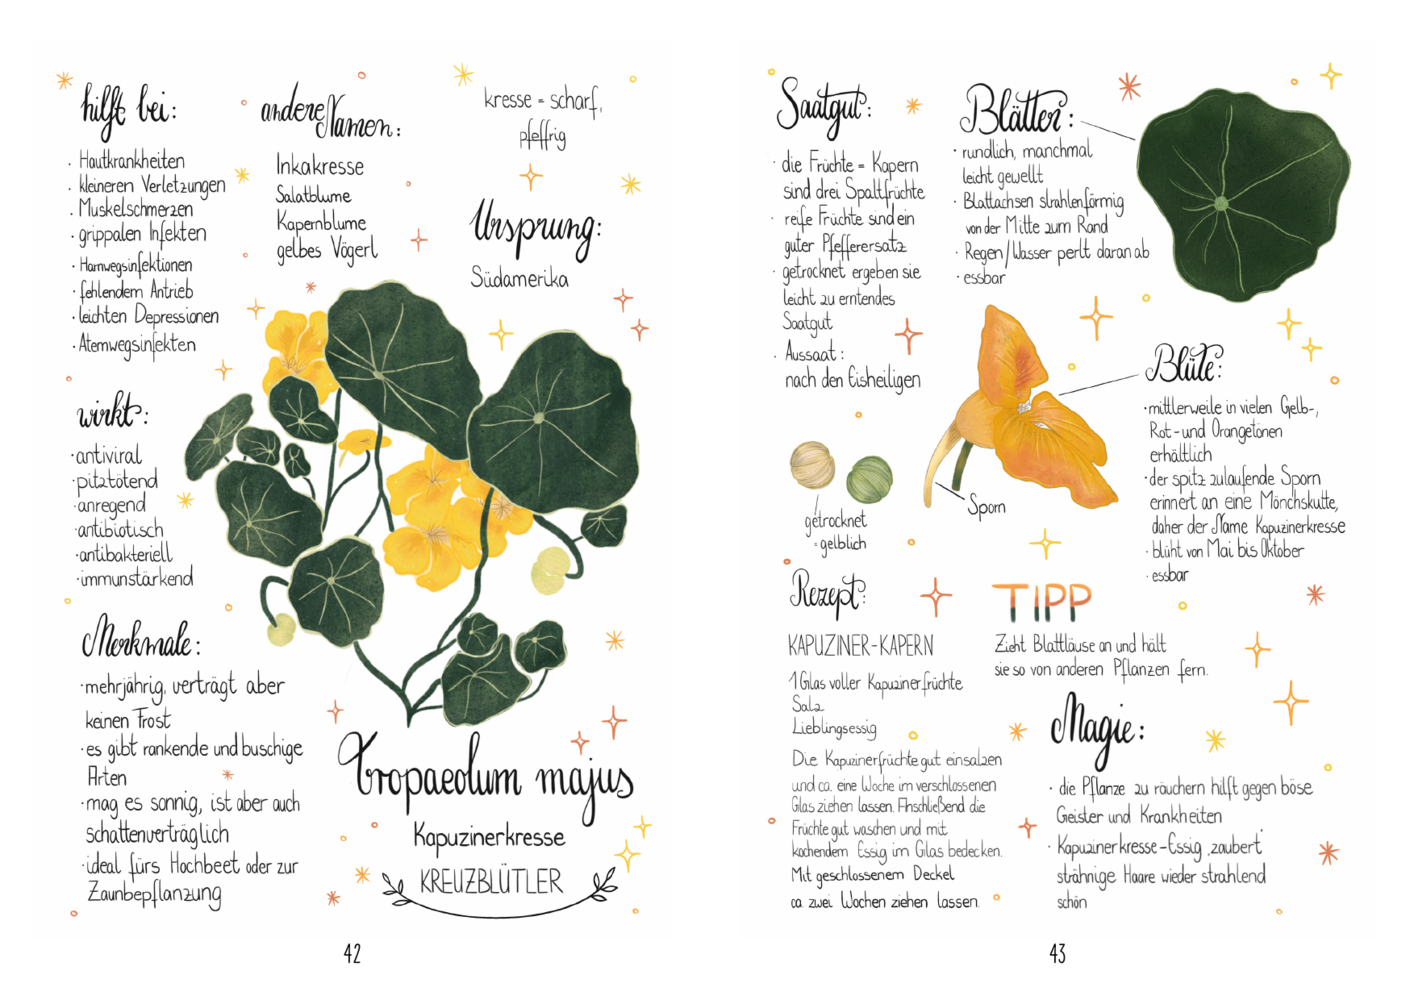 hilft bei:
· Hautkrankheiten
· kleineren Verletzungen
· Muskelschmerzen
· grippalen Infekten
· Harnwegsinfektionen
· fehlendem Antrieb
· leichten Depressionen
· Atemwegsinfekten
wirkt:
· antiviral
· pilztötend
· anregend
· antibiotisch
· antibakteriell
· immunstärkend
Merkmale:
· mehrjährig, verträgt aber
keinen Frost
· es gibt rankende und buschige
Arten
· mag es sonnig, ist aber auch
schattenverträglich
· ideal fürs Hochbeet oder zur
Zaunbepflanzung
andere Namen:
Inkakresse
Salatblume
Kapernblume
gelbes Vögerl
kresse = scharf,
pfeffrig
Ursprung:
Südamerika
Tropaeolum majus
Kapuzinerkresse
KREUZBLÜTLER
42
Saatgut:
· die Früchte = Kapern
sind drei Spaltfrüchte
· reife Früchte sind ein
guter Pfefferersatz
· getrocknet ergeben sie
leicht zu erntendes
Saatgut
· Aussaat:
nach den Eisheiligen
getrocknet
= gelblich
Blätter:
· rundlich, manchmal
leicht gewellt
· Blattachsen strahlenförmig
von der Mitte zum Rand
· Regen/Wasser perlt daran ab
· essbar
Sporn
Blüte:
· mittlerweile in vielen Gelb-,
Rot- und Orangetönen
erhältlich
· der spitz zulaufende Sporn
erinnert an eine Mönchskutte,
daher der Name Kapuzinerkresse
· blüht von Mai bis Oktober
· essbar
Rezept:
KAPUZINER-KAPERN
1 Glas voller Kapuzinerfrüchte
Salz
Lieblingsessig
Die Kapuzinerfrüchte gut einsalzen
und ca. eine Woche im verschlossenen
Glas ziehen lassen. Anschließend die
Früchte gut waschen und mit
kochendem Essig im Glas bedecken.
Mit geschlossenem Deckel
ca. zwei Wochen ziehen lassen.
TIPP
Zieht Blattläuse an und hält
sie so von anderen Pflanzen fern.
Magie:
· die Pflanze zu räuchern hilft gegen böse
Geister und Krankheiten
· Kapuzinerkresse-Essig „zaubert"
strähnige Haare wieder strahlend
schön
43